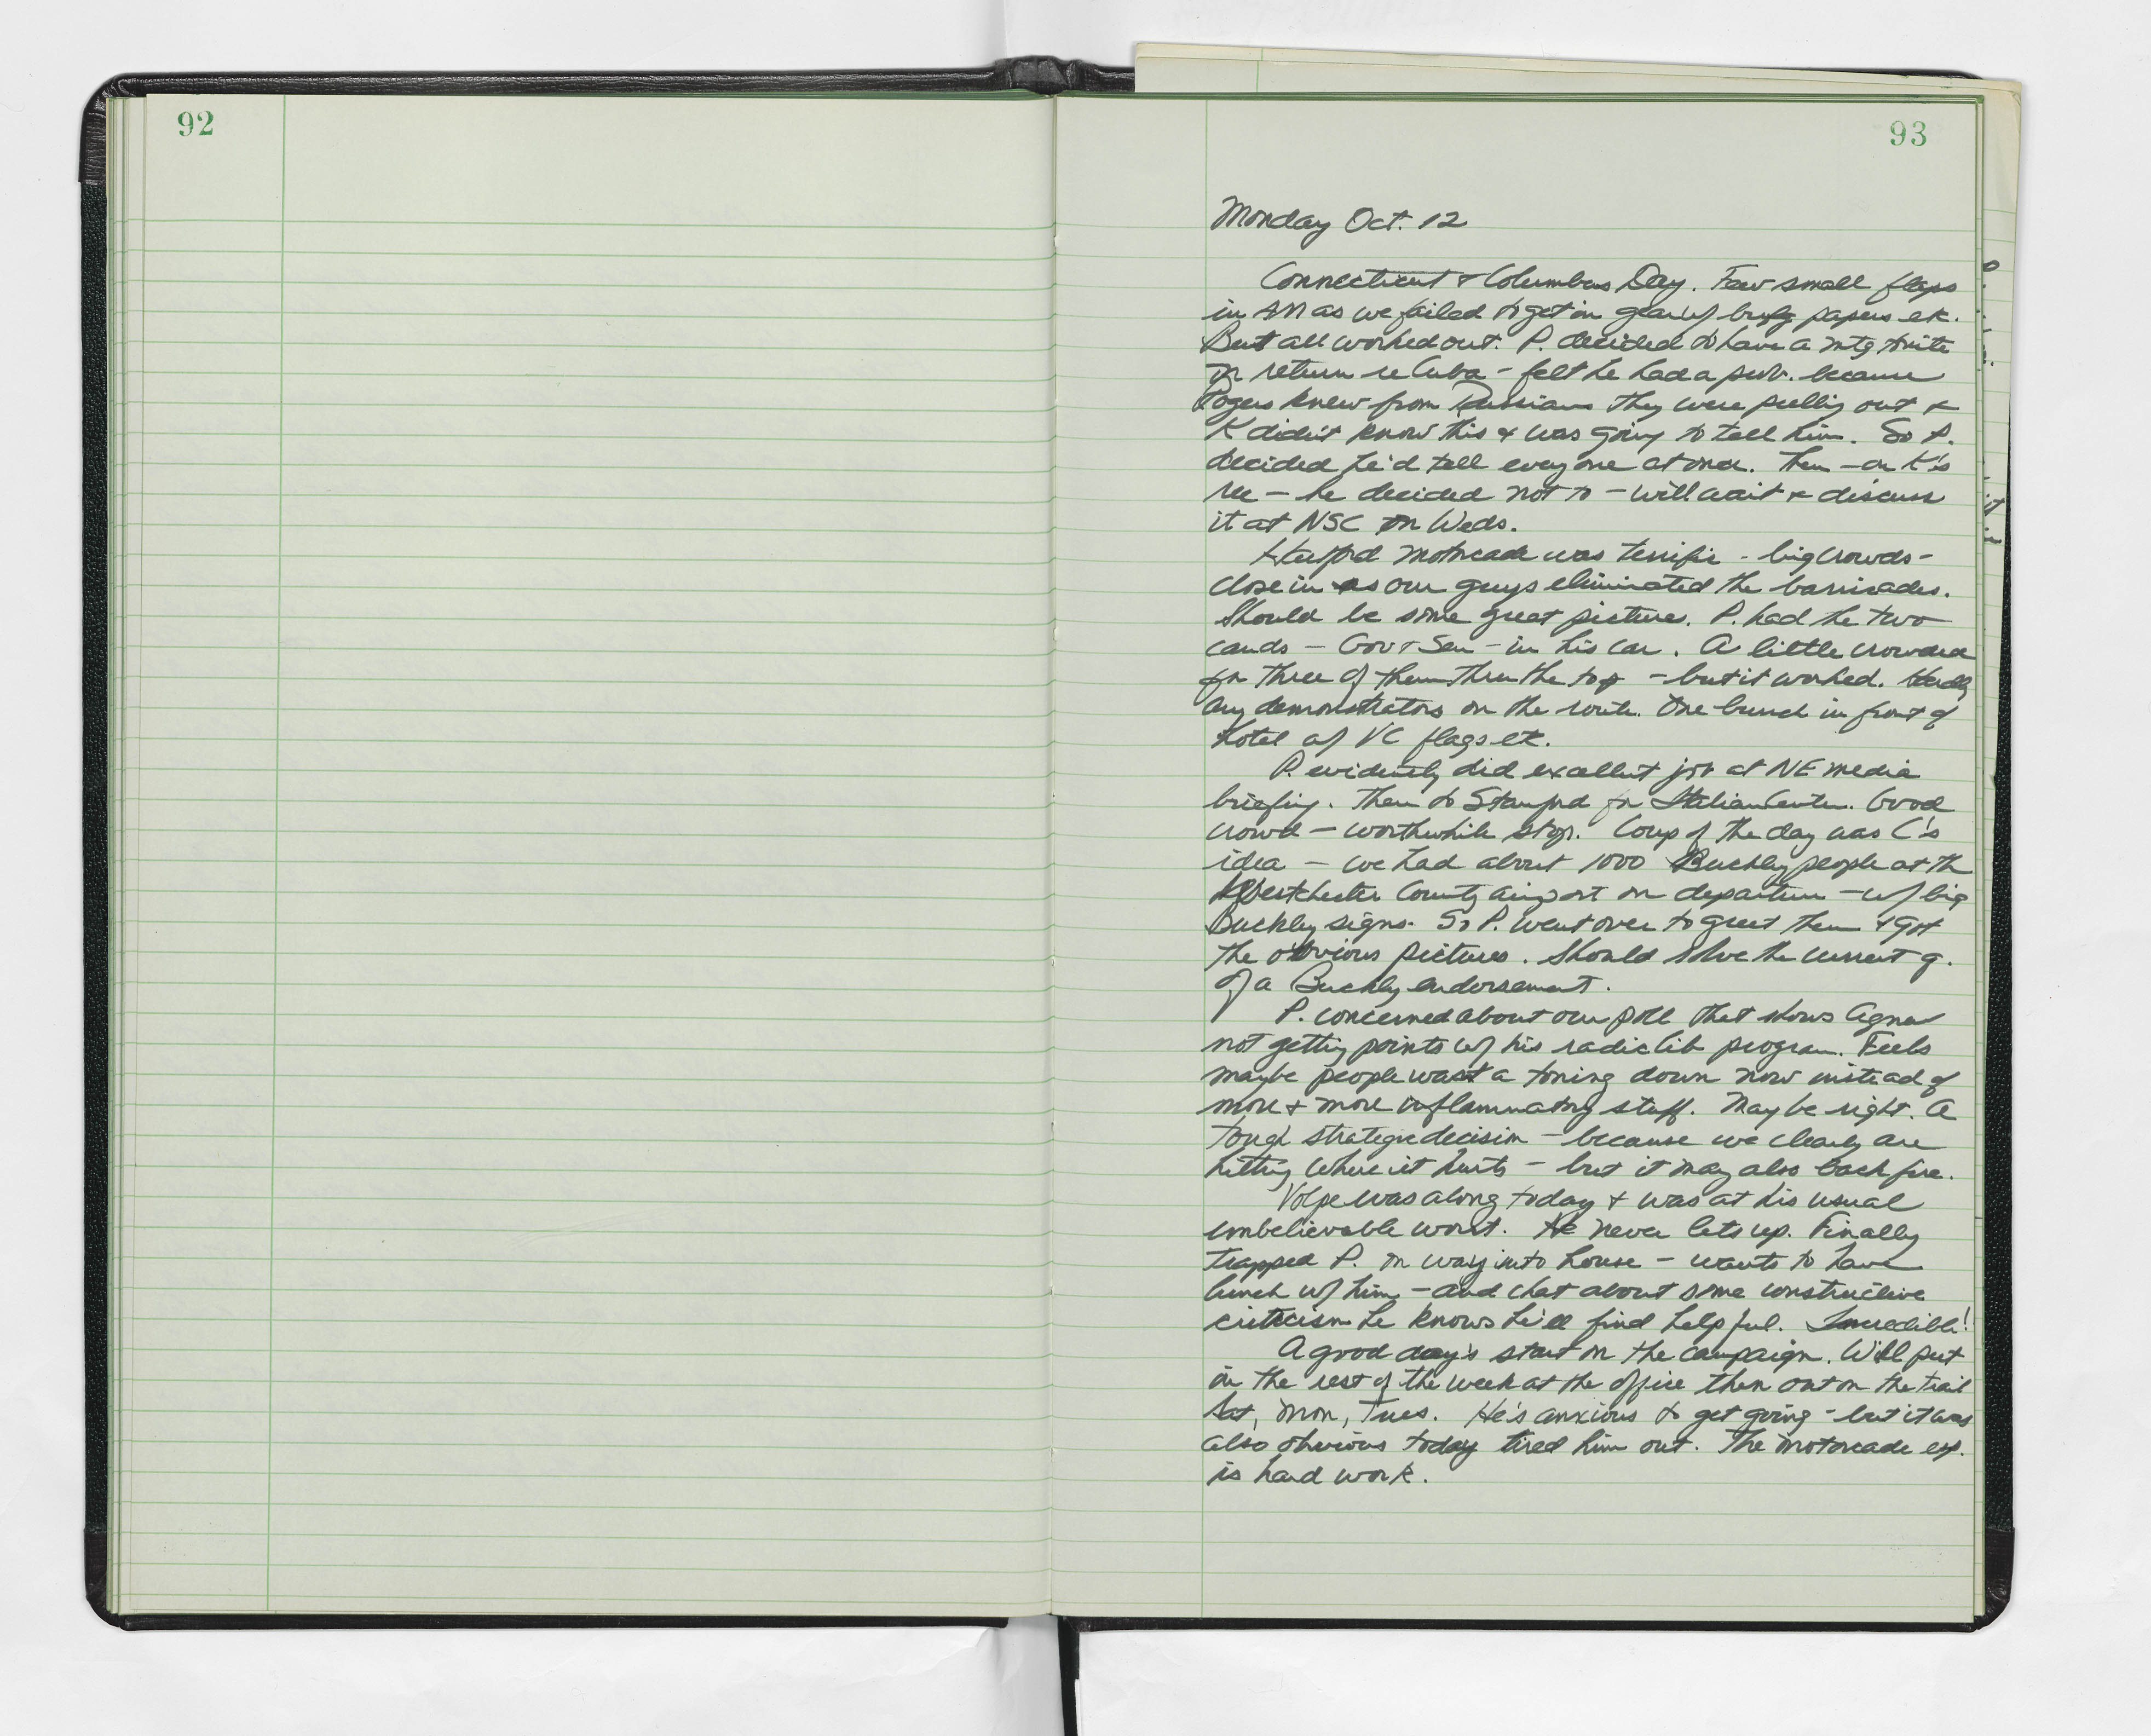 92
93
Monday Oct. 12
Connecticut & Columbus Day. Few small flaps
in AM as we failed to get in gear w/ brfg papers etc.
But all worked out. P. decided to have a mtg tonite
on return re Cuba - felt he had a prob. because
Rogers knew from Russians they were pulling out &
K didn't know this & was going to tell him. So P.
decided he'd tell everyone at once. Then - on K's
rec - he decided not to - will wait & discuss
it at NSC on Weds.
Hartford motorcade was terrific - big crowds -
close in as our guys eliminated the barricades.
Should be some great pictures. P. had the two
cands - Gov & Sen - in his car. A little crowded
for three of them thru the top - but it worked. Hardly
any demonstrators on the route. One bunch in front of
hotel w/ VC flags etc.
P. evidently did excellent job at NE media
briefing. Then to Stamford for Italian Center. Good
crowd - worthwhile stop. Coup of the day was C's
idea - we had about 1000 Buckley people at the
Westchester County airport on departure - w/ big
Buckley signs. So P. went over to greet them & got
the obvious pictures. Should solve the current q.
of a Buckley endorsement.
P. concerned about our poll that shows Agnew
not getting points w/ his radiclib program. Feels
maybe people want a toning down now instead of
more & more inflammatory stuff. May be right. A
tough strategic decision - because we clearly are
hitting where it hurts - but it may also backfire.
Volpe was along today & was at his usual
unbelievable worst. He never lets up. Finally
trapped P. on way into house - wants to have
lunch w/ him - and chat about some constructive
criticism he knows he'll find helpful. Incredible!
A good day's start on the campaign. Will put
in the rest of the week at the office then out on the trail
Sat, Mon, Tues. He's anxious to get going - but it was
also obvious today tired him out. The motorcade esp.
is hard work.